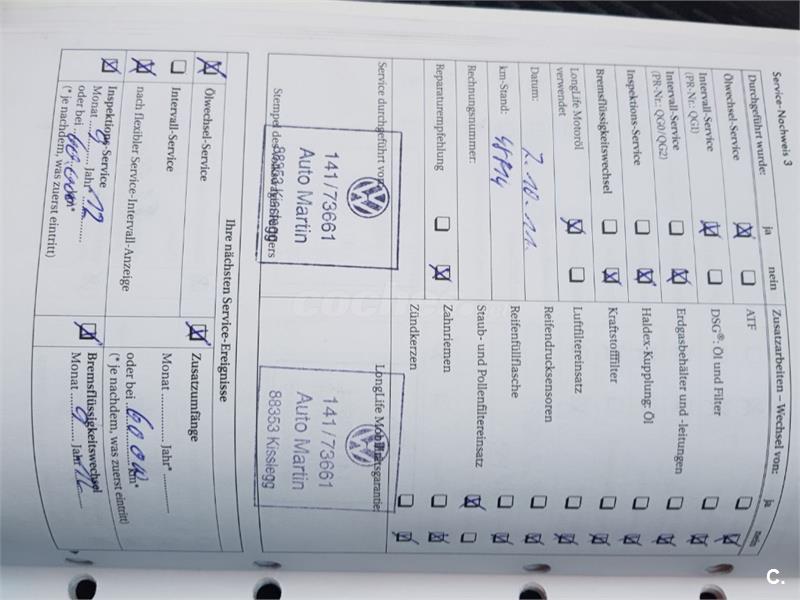 Service-Nachweis 3
Durchgeführt wurde: ja nein
Ölwechsel-Service
Intervall-Service
(PR-Nr.: QG1)
Intervall-Service
(PR-Nr.: QG0/QG2)
Inspektions-Service
Bremsflüssigkeitswechsel
LongLife Motoröl
verwendet
Datum:
km-Stand:
Rechnungsnummer:
Reparaturempfehlung
Zusatzarbeiten – Wechsel von: ja nein
ATF
DSG®: Öl und Filter
Erdgasbehälter und -leitungen
Haldex-Kupplung: Öl
Kraftstofffilter
Luftfiltereinsatz
Reifendrucksensoren
Reifenfüllflasche
Staub- und Pollenfiltereinsatz
Zahnriemen
Zündkerzen
Service durchgeführt von:
141/73661
Auto Martin
88353 Kisslegg
Stempel des
LongLife Mobilitätsgarantie:
141/73661
Auto Martin
88353 Kisslegg
Ihre nächsten Service-Ereignisse
Ölwechsel-Service
Intervall-Service
nach flexibler Service-Intervall-Anzeige
Inspektions-Service
Monat 9 Jahr* 12
oder bei km*
(* je nachdem, was zuerst eintritt)
Zusatzumfänge
Monat Jahr*
oder bei km*
(* je nachdem, was zuerst eintritt)
Bremsflüssigkeitswechsel
Monat 9 Jahr
coches
C.